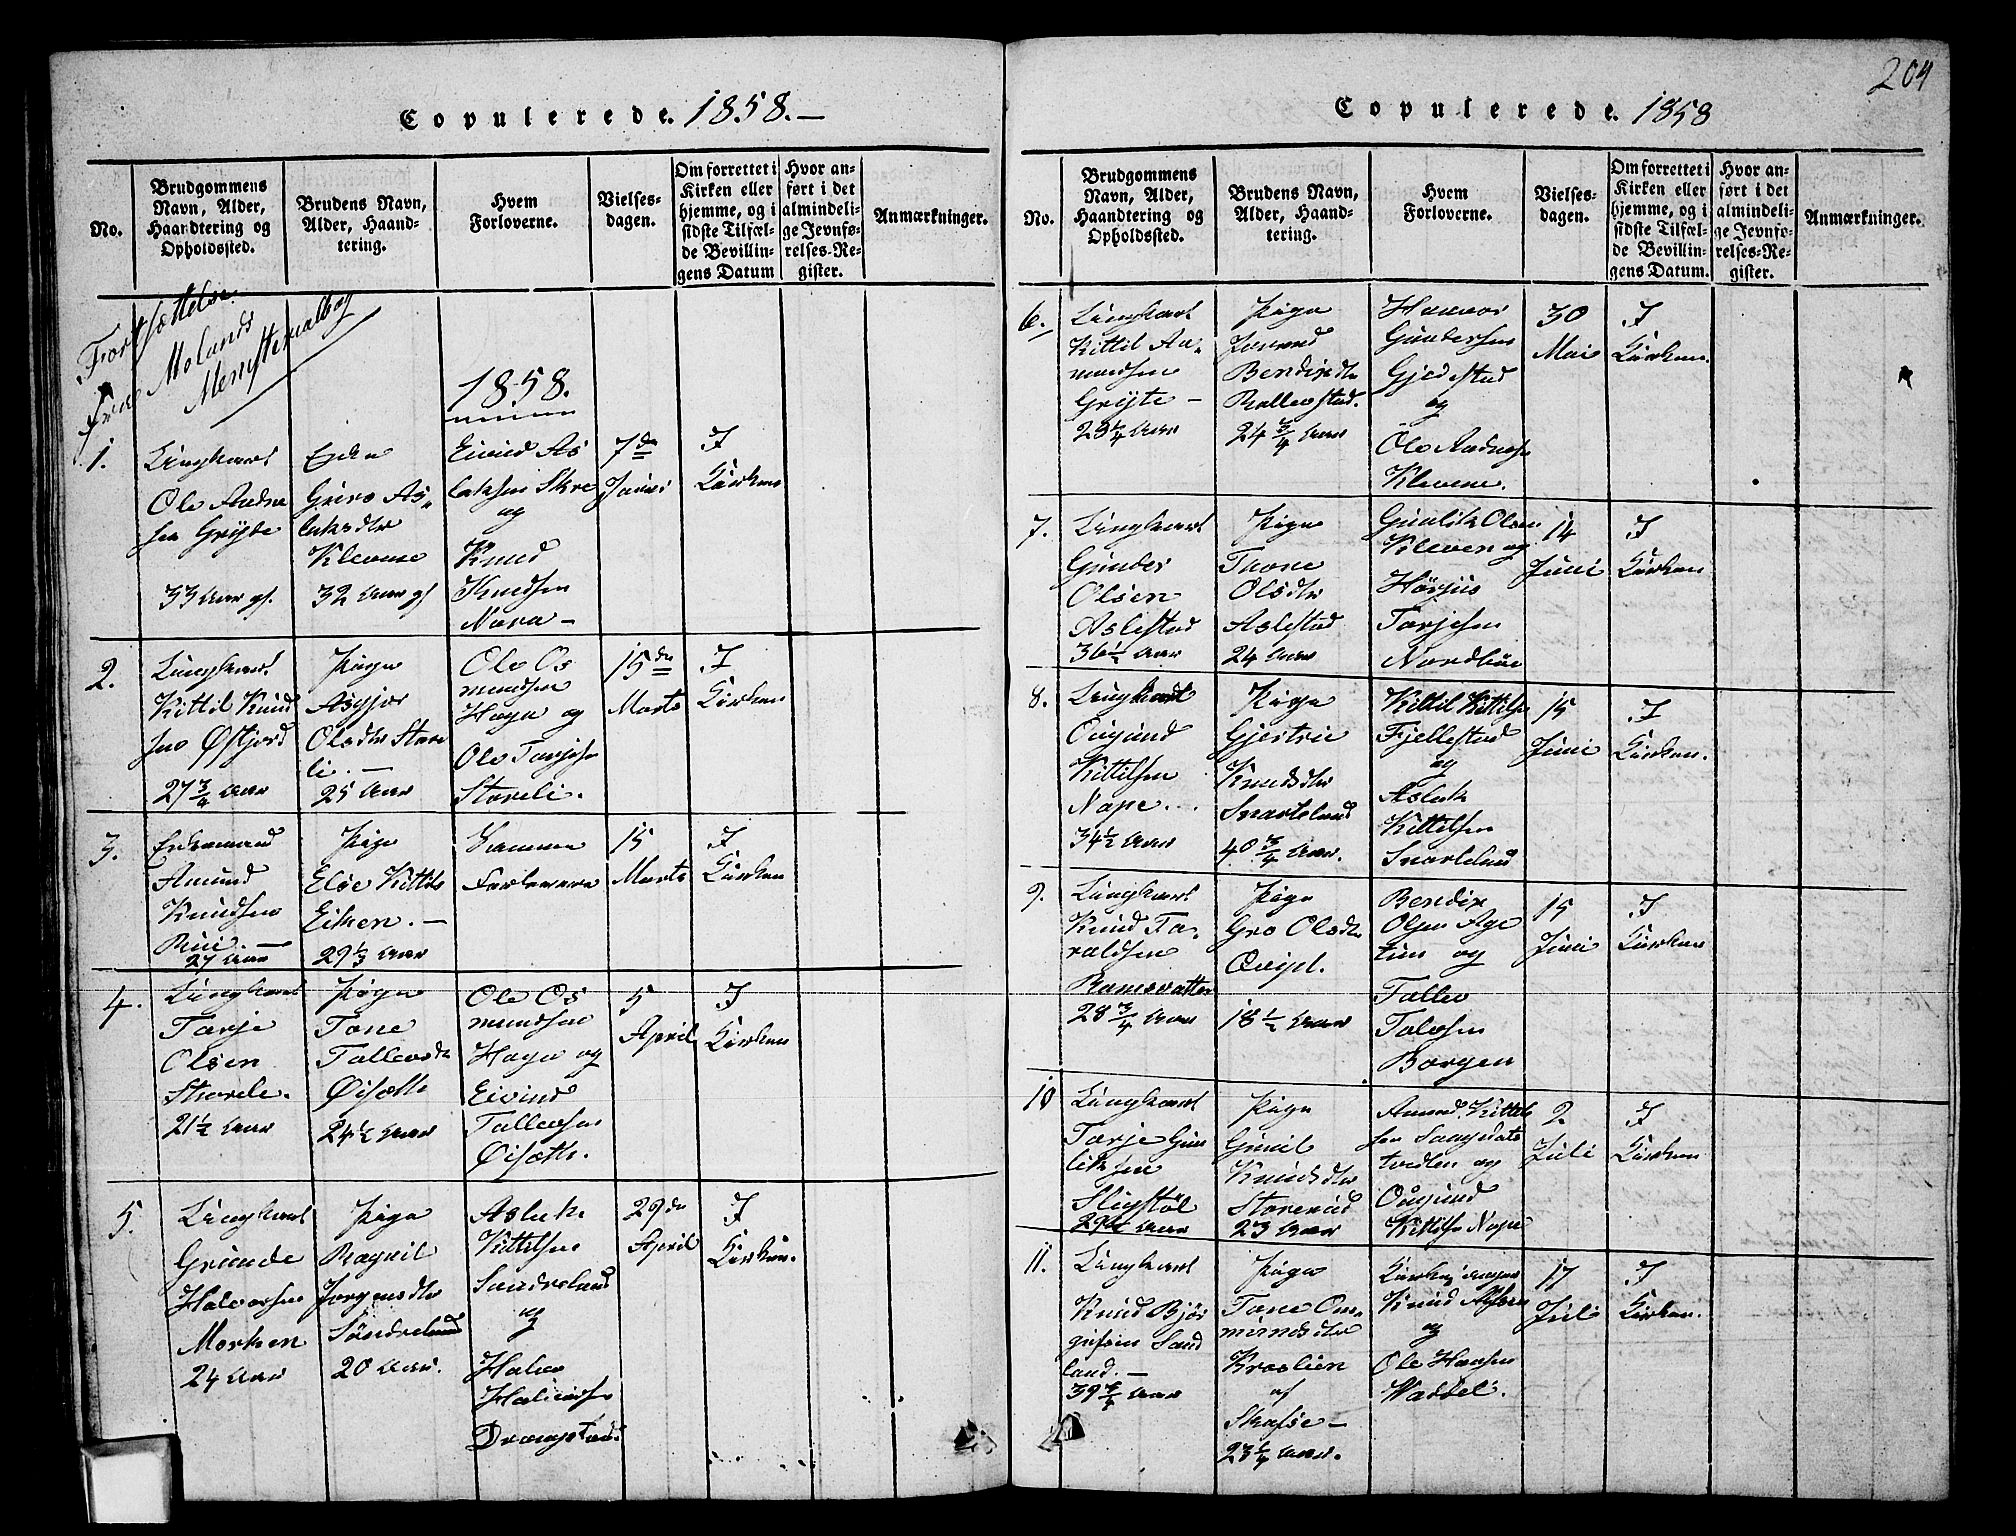 Copulerede. 1858.
No.
Brudgommens
Navn, Alder,
Haandtering og
Opholdssted.
Brudens Navn,
Alder, Haand-
tering.
Hvem
Forloverne.
Vielses-
dagen.
Om forrettet i
Kirken eller
hjemme, og i
sidste Tilfæl-
de Bevillin-
gens Datum
Hvor an-
ført i det
almindeli-
ge Jevnfø-
relses-Re-
gister.
Anmærkninger.
Fortsættelse
fra Molands
1858.
1.
Ungkarl
Ole Aadne
sen Grÿte
33 Aar gl.
Enken
Guro As-
laksdtr
Klevene
32 Aar gl
Eivind As
laksen Skre
og
Knud
Knudsen
Nara
7de
Januar
I
Kirken
2.
Ungkarl
Kittil Knud
sen Østjord
27 3/4 Aar
Pige
Asgjer
Olsdtr Store
li. —
25 Aar
Ole Os
mundsen
Haga og
Ole Tarjesen
Storeli.
15de
Marts
I
Kirken
3.
Enkemand
Amund
Knudsen
Rui. —
27 Aar
Pige
Else Kittils
Eiken. —
29 1/3 Aar
Samme
Forlovere
15
Marts
I
Kirken
4.
Ungkarl
Tarje
Olsen
Storeli.
21 1/2 Aar
Pige
Tone
Tallevsdtr
Øisætte
24 1/2 Aar
Ole Os
mundsen
Haga og
Eivind
Tallevsen
Øisætte.
5
April
I
Kirken
5.
Ungkarl
Grunde
Halvorsen
Morken
24 Aar
Pige
Ragnil
Jorgensdtr
Søndreland
20 Aar.
Aslak
Kittilsen
Sandreland
og
Halvor
29de
April
I
Kirken.
204
Copulerede. 1858
No.
Brudgommens
Navn, Alder,
Haandtering og
Opholdssted.
Brudens Navn,
Alder, Haand-
tering.
Hvem
Forloverne.
Vielses-
dagen.
Om forrettet i
Kirken eller
hjemme, og i
sidste Tilfæl-
de Bevillin-
gens Datum.
Hvor an-
ført i det
almindeli-
ge Jevnfø-
relses-Re-
gister.
Anmærkninger.
6.
Ungkarl
Kittil Aa-
mundsen
Grÿte —
23 1/4 Aar
Pige
Jorand
Bendixdtr
Rollevstad.
24 3/4 Aar
Halvor
Gundersen
Gjedestad
og
Ole Aadnesen
Klevene.
30
Mai
I
Kirken.
7.
Ungkarl
Gunder
Olsen
Aslestad
36 1/2 Aar
Pige
Tarone
Olsdtr
Aslestad
24 Aar
Gunlik Olsen
Kleven og
Hørjus
Tarjesen
Nordbøe
14
Juni
I
Kirken
8.
Ungkarl
Øugund
Kittilsen
Nape.
34 1/2 Aar
Pige
Gjertrie
Knudsdtr
Svartelund
40 3/4 Aar.
Kittil Kittilsen
Fjellestad
og
Aslak
Kittilsen
Svartelund
15
Juni
I
Kirken.
9.
Ungkarl
Knud Ta-
raldsen
Ramsvatten
28 3/4 Aar
Pige
Gro Olsdtr
18 1/2 Aar
Bendix
Olsen Age
tun og
Tallev
Talevsen
Borgen
15
Juni
I
Kirken
10
Ungkarl
Tarje Gun
liksen
Sligstøl
29 1/4 Aar
Pige
Gunil
Knudsdtr
Storerud
23 Aar
Amund Kittils
sen
og
Øugund
Kittilsen Nape
2
Juli
I
Kirken
11.
Ungkarl
Knud Bjør
gufsen Sand
land. —
39 3/4 Aar
Pige
Tone Om-
mundsdtr
Kraslien
af
Skafse —
23 1/4 Aar.
Kirkesanger
Knud Alfsen
og
Ole Hansen
Waddel.
17
Juli
I
Kirken.